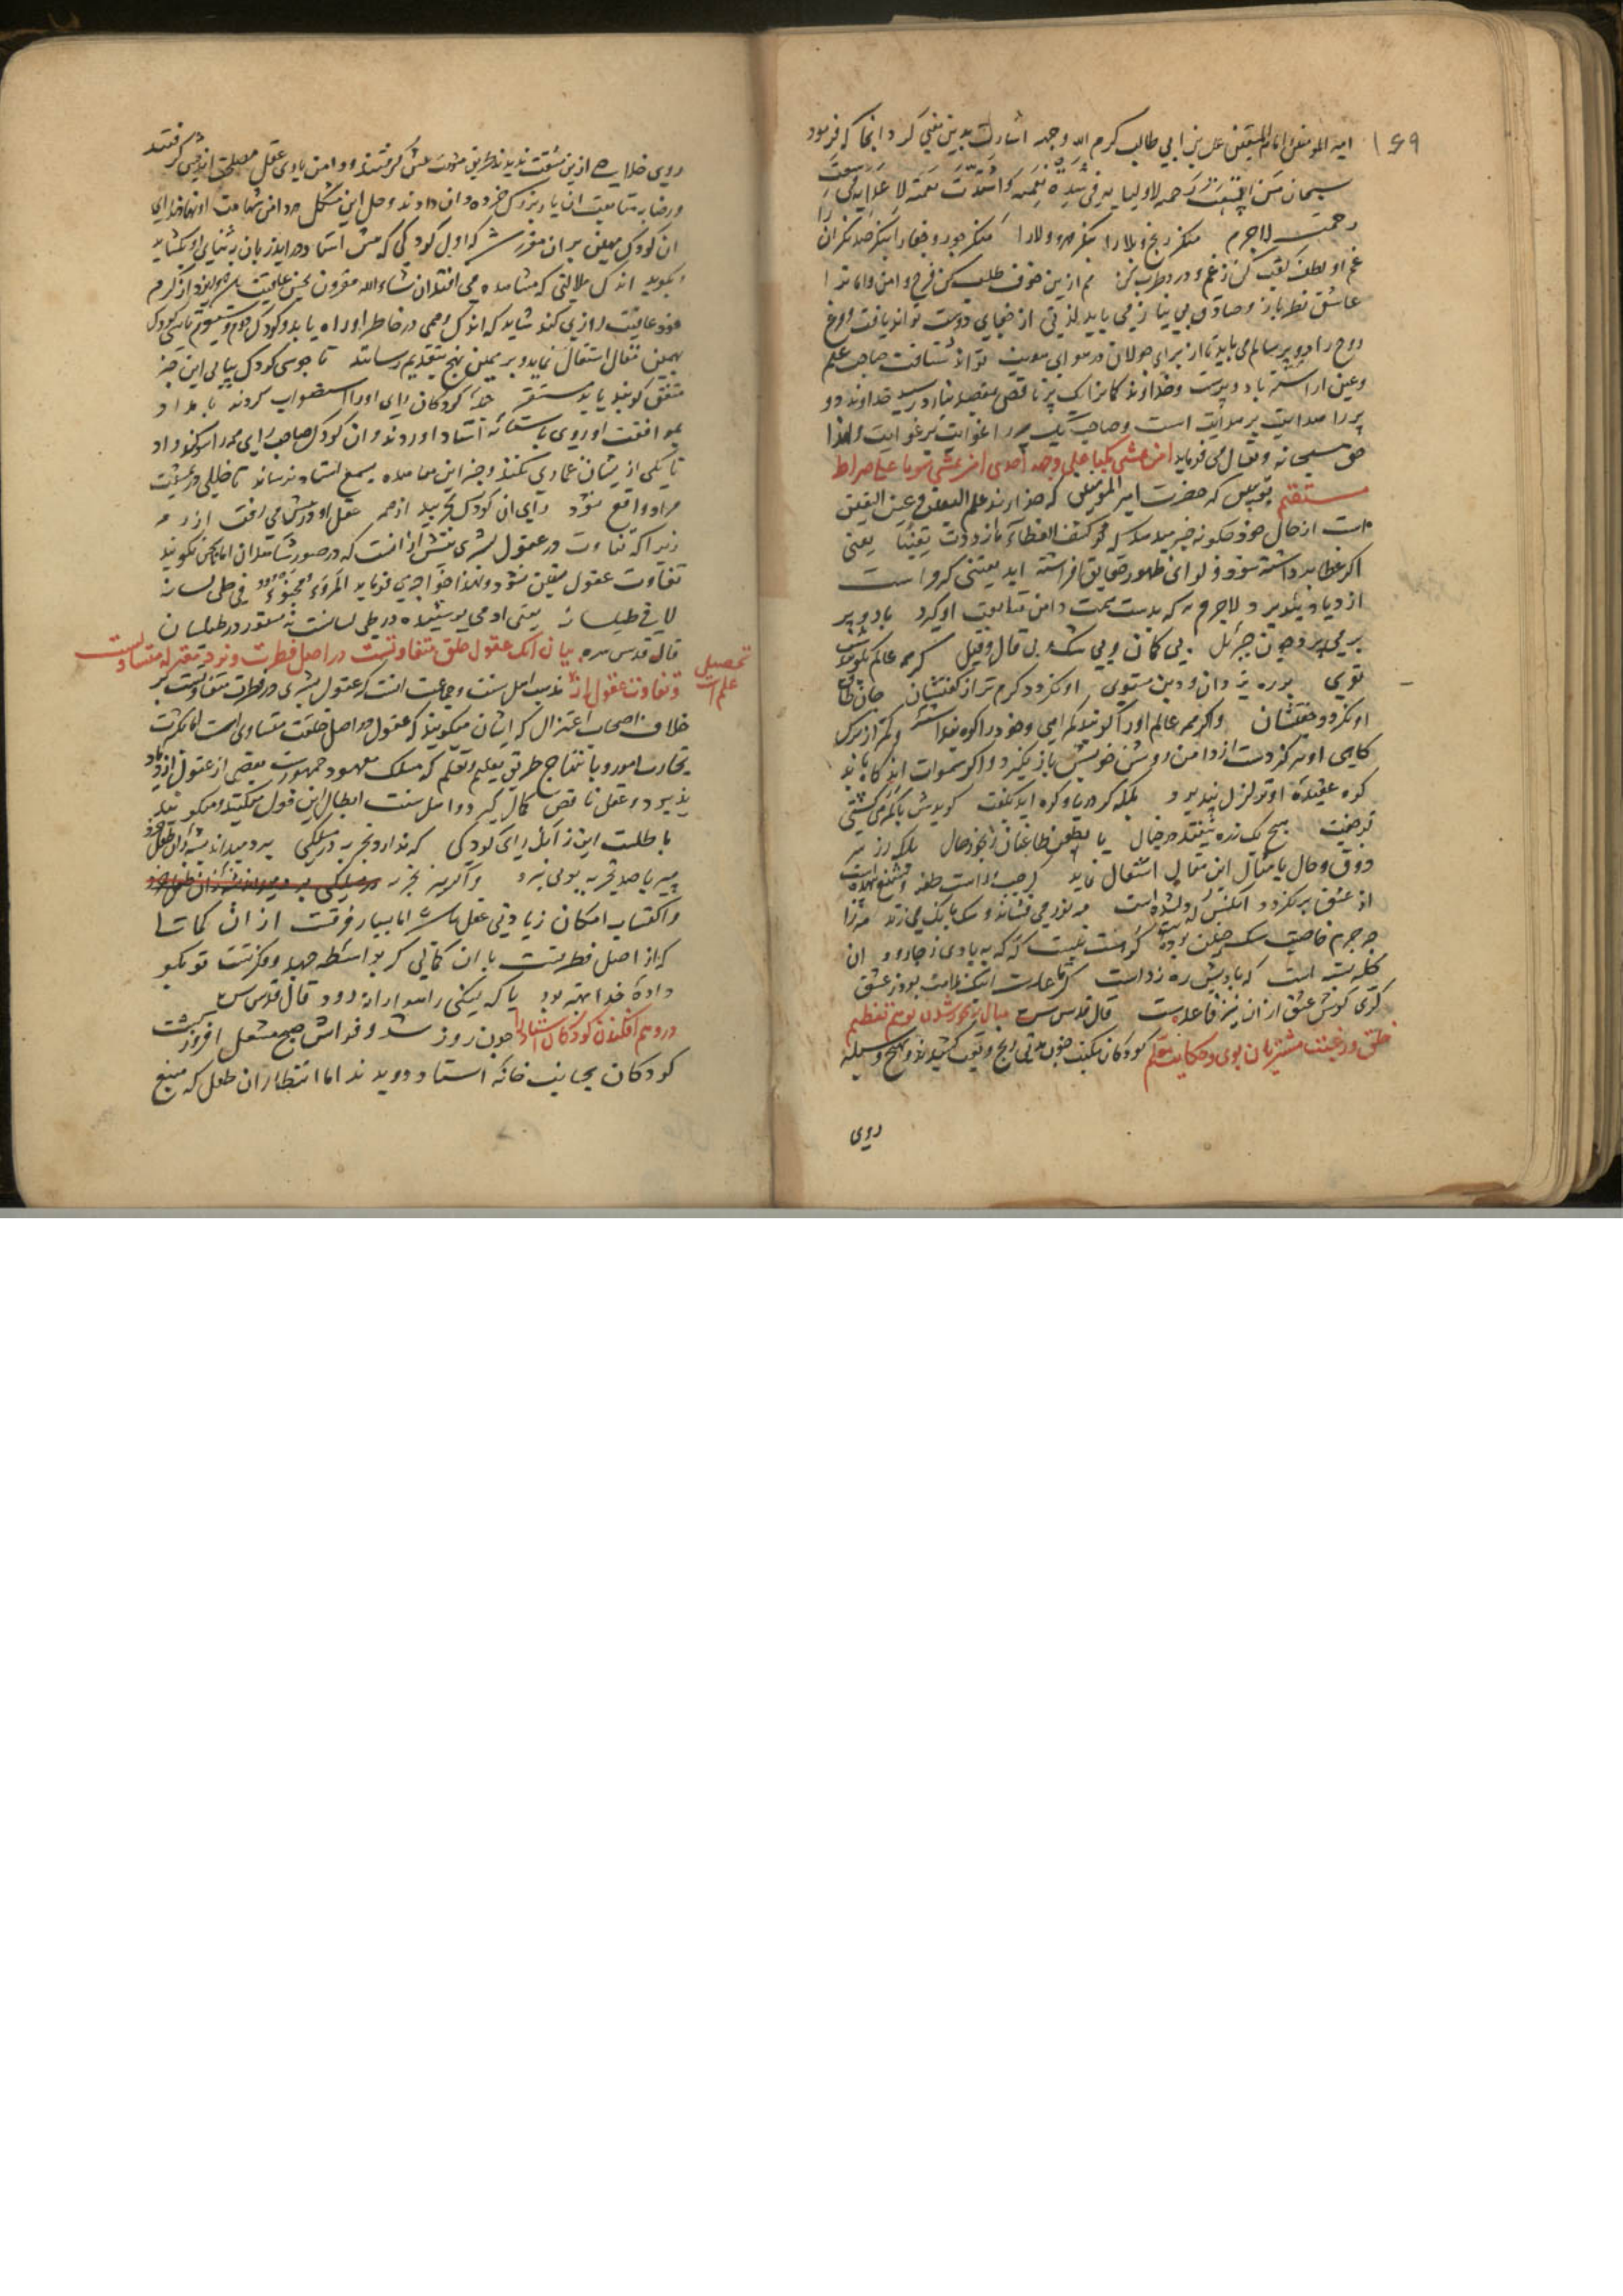 ۱۶۹
امیر المومنین امام المتقین علی بن ابی طالب کرم الله وجهه اشارت بدین معنی کرد انجا که فرمود
سبحان من اتسعت رحمه لاولیایه فی شدة نقمته واشتدت نقمته لاعدایه فی سعة
رحمته لاجرم منکر رنج و بلا را بنکر منکر جور و جفا را بنکر صد نکران
غم او لطف لقب کن ز غم و درد طرب کن هم ازین خوف طلب کن فرح و امن و امان را
عاشق نظرباز و صادق می باید لذتی از جفای دوست تواند یافت
روح را دو پر سالم می باید تا از برای جولان در هوای هویت تواند شتافت صاحب علم
وعین اراسته باد و پرست وخداوند کامزان یک پر ناقص بمقصد نتواند رسید خداوند دو
پر را هدایت بر هدایت است و صاحب یک پر را غوایت بر غوایت ولهذا
حق سبحانه وتعالی می فرماید افمن یمشی مکبا علی وجهه اهدی امن یمشی سویا علی صراط
مستقیم که حضرت امیر المومنین که خداوند علم الیقین و عین الیقین
است از حال خود چکونه خبر میدهد که لو کشف الغطاء ما ازددت یقینا یعنی
اکر غطا برداشته شود و لوای ظهور حقایق افراشته اید یقینی که مراست
ازدیاد نپذیرد لاجرم هر که بدست همت دامن متابعت او کیرد بادو پر
بر می پرد چون جبرئیل بی کمان و بی شک و بی قال وقیل کر همه عالم بکویندش
توی بر ره یزدان و دین مستوی او نکردد کرم تر از کفتشان جان طاق
او نکردد جفتشان واکر همه عالم او را کویند کمراهی وخود را کوه پنداشته وکمتر از برک
کاهی او نیز دست از دامن روشن خویش باز نکیرد واکر سموات اید کاه باید
کوه عقیده او تزلزل نپذیرد بلکه کر دریا و کوه اید بکفت کویدش با کمرهی کشتی
تو جفت هیچ یک ذره نیفتد در خیال یا بطعن طاعنان رنجور حال بلکه از سر
ذوق وحال بامثال این مقال اشتغال نماید
از عشق برنکردد انکس که دلشده است مه نور می فشاند و سک بانک می زند مه را
چه جرم خاصیت سک چنین بوده کوهست نیست که که به بادی ز جا رود ان
کله پشه است که بادیش ره زده است کر قاعدست اینک ملامت بود ز عشق
کری کوش عشق از ان نیز قاعده ست قال قدس سره مثال رنجور شدن بوهم تعظیم
خلق و رغبت مشتریان بوی و حکایت معلم کودکان مکتب چون مدتی رنج وتعب کشیدند و بهیچ وسیله
روی
روی خلاصی ازین مشقت ندیدند طریق مشورت پیش کرفتند و دامن یاری عقل مصلحت اندیش کرفتند
ورضا بمتابعت ان یار بزرک خرده دان دادند وحل این مشکل در دامن شهامت او نهادند رای
ان کودک مهین بران مقرر شد که اول کودکی که پیش استاد دراید زبان بثنای او بکشاید
وبکوید اندک ملالتی که مشاهده می افتد ان شاء الله مقرون بحسن عافیت باد
تا یکی وهمی در خاطر او راه یابد و کودک دوم و سیوم تا سی کودک
بهمین مقال اشتغال نماید و بر همین نهج بتقدیم رسانند تا چون سی کودک پیاپی این خبر
متفق کویند یابد مستقر جمله کودکان رای او را استصواب کردند بامداد
بموافقت او روی باستانه استاد اوردند وان کودک صاحب رای همه را سوکند داد
تا یکی از یشان غمازی نکند وخبر این معامده بسمع استاد نرساند تا خللی در مشیت
مراد واقع نشود رای ان کودک بچربید از همه عقل او در پیش می رفت از رمه
زیرا که تفاوت در عقول بشری بیش از انست که در صور شاهدان اما تا سخن نکویند
تفاوت عقول متیقن نشود ولهذا خواجه می فرماید المرء مخبوء فی طی لسانه
لا فی طیلسانه یعنی ادمی پوشیده در طی لسانست نه مستور در طیلسان
قال قدس سره بیان انک عقول خلق متفاوتست در اصل فطرت و نزد معتزله متساویست
وتفاوت عقول از تحصیل علم است مذهب اهل سنت وجماعت انست که عقول بشری در فطرت متفاوتست بر
خلاف اصحاب اعتزال که ایشان میکویند که عقول در اصل خلقت متساوی است اما بکثرت
تجارب امور و بانتهاج طریق تعلیم وتعلم که مسلک معهود جمهورست بعضی از عقول ازدیاد
پذیرد وعقل ناقص کمال کیرد واهل سنت ابطال این قول میکنند ومیکویند
باطلست این زانک رای کودکی که ندارد تجربه در مسلکی بردمید اندیشه زان طفل خرد
پیر با صد تجربه بویی نبرد واکر چه تجربه در مسلکی بردمید اندیشه زان طفل خرد
واکتساب امکان زیادتی عقل هست اما بسیار فرقست از ان کمالتها
که از اصل فطرتست با ان کمالی که بواسطه جهد و فکرتست تو بکو
داده خدا بهتر بود یا که لنکی راهوارانه رود قال قدس سره
در وهم افکندن کودکان استاد را چون روز شد و فراش صبح مشعل افروز کشت
کودکان بجانب خانه استاد دویدند اما انتظار ان طفل که منبع